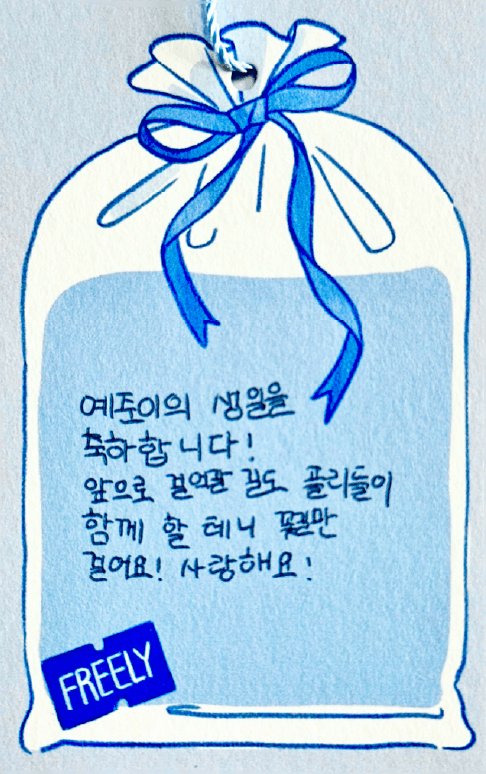 예준이의 생일을
축하합니다!
앞으로 걸어갈 길도 플리들이
함께 할 테니 꽃길만
걸어요! 사랑해요!
FREELY